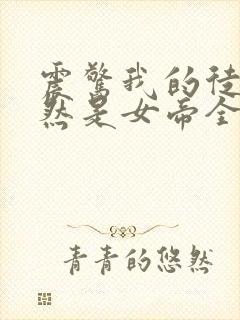 震惊我的徒
然是女帝全
青青的悠然